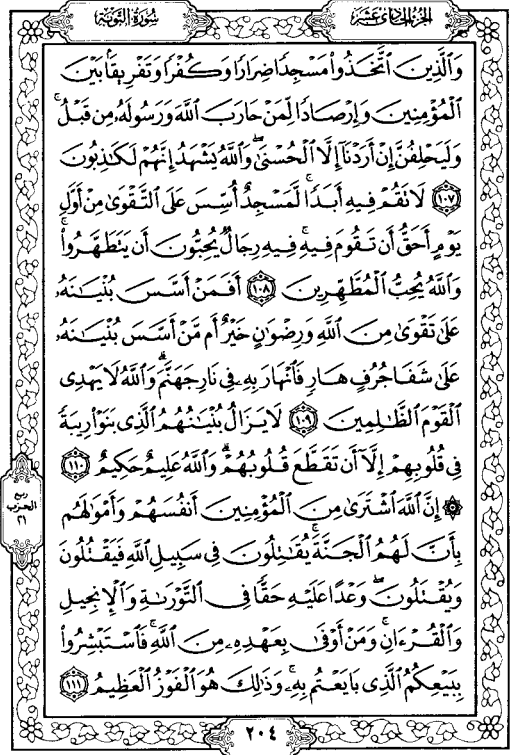 سُورَةُ التَّوْبَةِ
الجزء الحادي عشر
وَٱلَّذِينَ ٱتَّخَذُوا۟ مَسْجِدًا ضِرَارًا وَكُفْرًا وَتَفْرِيقًۢا بَيْنَ
ٱلْمُؤْمِنِينَ وَإِرْصَادًا لِّمَنْ حَارَبَ ٱللَّهَ وَرَسُولَهُۥ مِن قَبْلُ ۚ
وَلَيَحْلِفُنَّ إِنْ أَرَدْنَآ إِلَّا ٱلْحُسْنَىٰ ۖ وَٱللَّهُ يَشْهَدُ إِنَّهُمْ لَكَـٰذِبُونَ
١٠٧ لَا تَقُمْ فِيهِ أَبَدًا ۚ لَّمَسْجِدٌ أُسِّسَ عَلَى ٱلتَّقْوَىٰ مِنْ أَوَّلِ
يَوْمٍ أَحَقُّ أَن تَقُومَ فِيهِ ۚ فِيهِ رِجَالٌ يُحِبُّونَ أَن يَتَطَهَّرُوا۟ ۚ
وَٱللَّهُ يُحِبُّ ٱلْمُطَّهِّرِينَ ١٠٨ أَفَمَنْ أَسَّسَ بُنْيَـٰنَهُۥ
عَلَىٰ تَقْوَىٰ مِنَ ٱللَّهِ وَرِضْوَٰنٍ خَيْرٌ أَم مَّنْ أَسَّسَ بُنْيَـٰنَهُۥ
عَلَىٰ شَفَا جُرُفٍ هَارٍ فَٱنْهَارَ بِهِۦ فِى نَارِ جَهَنَّمَ ۗ وَٱللَّهُ لَا يَهْدِى
ٱلْقَوْمَ ٱلظَّـٰلِمِينَ ١٠٩ لَا يَزَالُ بُنْيَـٰنُهُمُ ٱلَّذِى بَنَوْا۟ رِيبَةً
فِى قُلُوبِهِمْ إِلَّآ أَن تَقَطَّعَ قُلُوبُهُمْ ۗ وَٱللَّهُ عَلِيمٌ حَكِيمٌ ١١٠
۞ إِنَّ ٱللَّهَ ٱشْتَرَىٰ مِنَ ٱلْمُؤْمِنِينَ أَنفُسَهُمْ وَأَمْوَٰلَهُم
بِأَنَّ لَهُمُ ٱلْجَنَّةَ ۚ يُقَـٰتِلُونَ فِى سَبِيلِ ٱللَّهِ فَيَقْتُلُونَ
وَيُقْتَلُونَ ۖ وَعْدًا عَلَيْهِ حَقًّا فِى ٱلتَّوْرَىٰةِ وَٱلْإِنجِيلِ
وَٱلْقُرْءَانِ ۚ وَمَنْ أَوْفَىٰ بِعَهْدِهِۦ مِنَ ٱللَّهِ ۚ فَٱسْتَبْشِرُوا۟
بِبَيْعِكُمُ ٱلَّذِى بَايَعْتُم بِهِۦ ۚ وَذَٰلِكَ هُوَ ٱلْفَوْزُ ٱلْعَظِيمُ ١١١
ربع
الحزب
٢١
٢٠٤